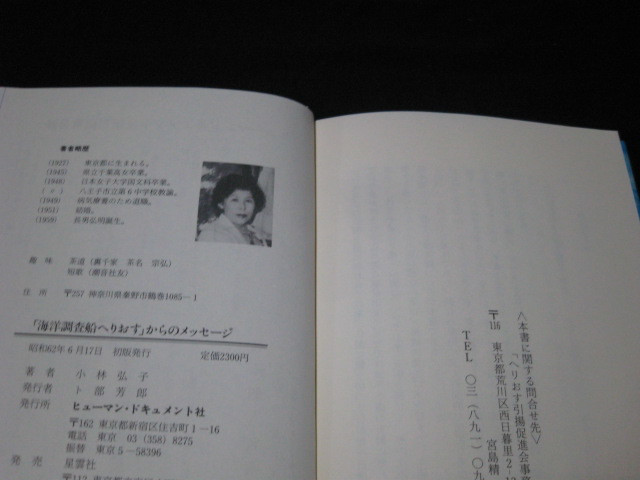 著者略歴
(1927) 東京都に生まれる。
(1945) 県立千葉高女卒業。
(1948) 日本女子大学国文科卒業。
( 〃 ) 八王子市立第6中学校教諭。
(1949) 病気療養のため退職。
(1951) 結婚。
(1959) 長男弘明誕生。
趣 味 茶道（裏千家 茶名 宗弘）
短歌（潮音社友）
住 所 〒257 神奈川県秦野市鶴巻1085-1
「海洋調査船へりおす」からのメッセージ
昭和62年6月17日 初版発行 定価2300円
著 者 小林弘子
発行者 卜部芳郎
発行所 ヒューマン・ドキュメント社
〒162 東京都新宿区住吉町1-16
電話 東京 03 (358) 8275
振替 東京 5-58396
発 売 星雲社
〒112 東京都
〈本書に関する問合せ先〉
「へりおす引揚促進会事
〒116 東京都荒川区西日暮里2-1
宮島
TEL 〇三（八九一）〇九